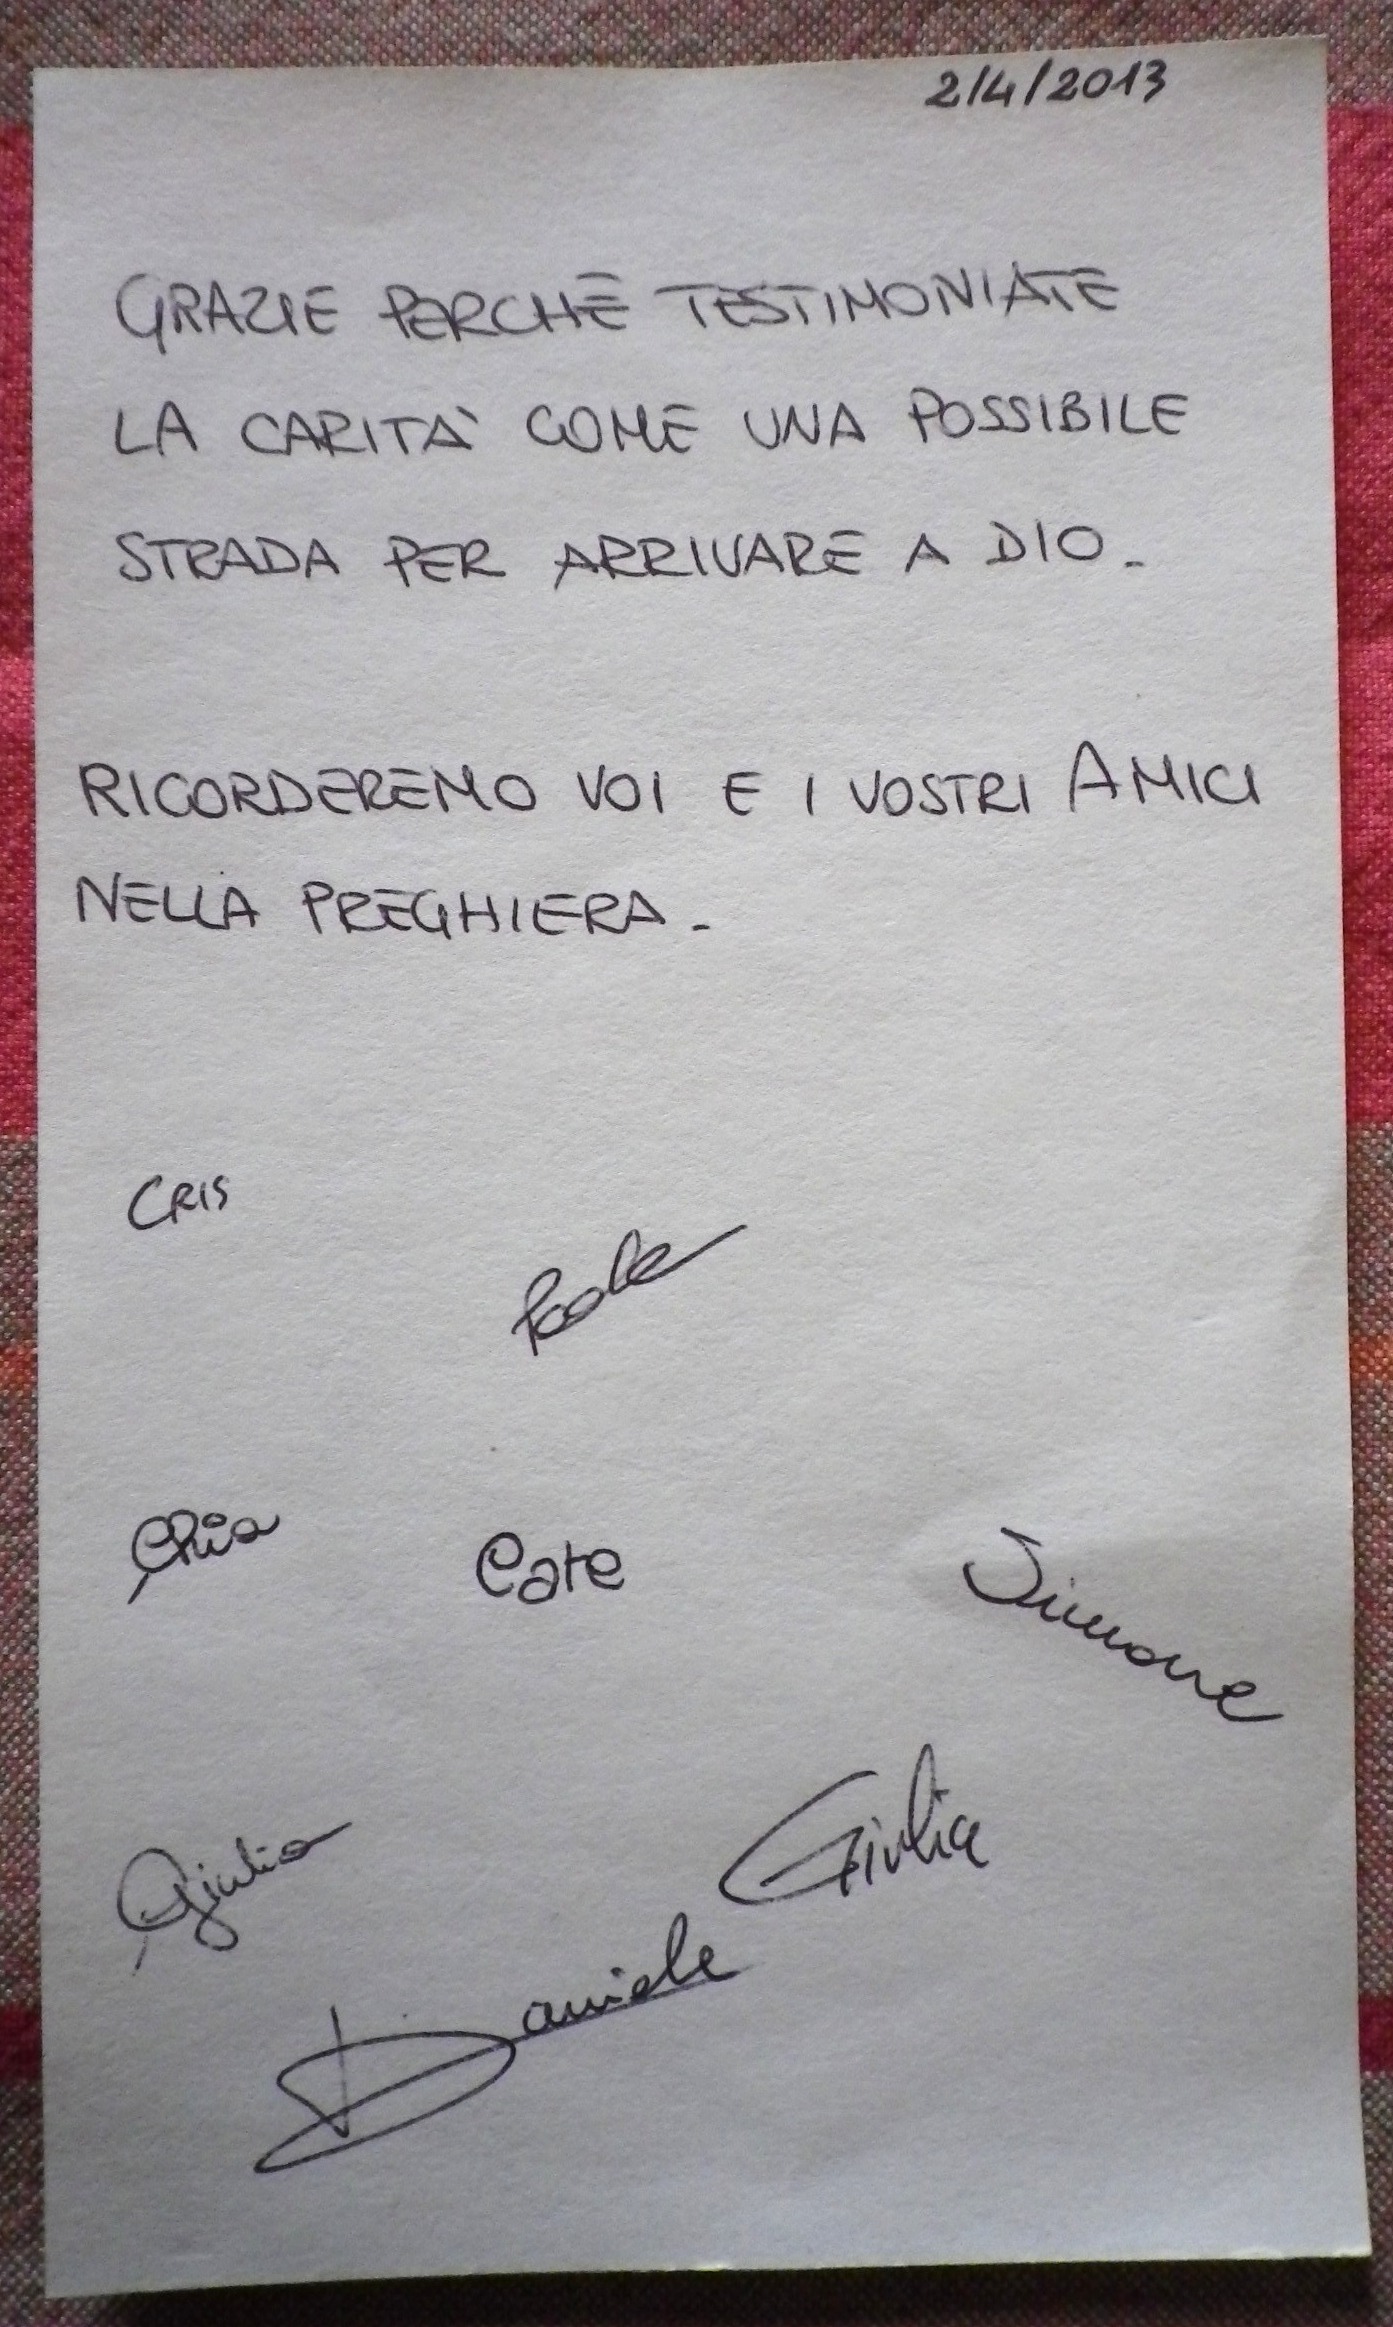 2/4/2013
GRAZIE PERCHĒ TESTIMONIATE
LA CARITÀ COME UNA POSSIBILE
STRADA PER ARRIVARE A DIO.
RICORDEREMO VOI E I VOSTRI AMICI
NELLA PREGHIERA.
CRIS
Paola
Chia Cate Simone
Giulia
Giulia
Daniele